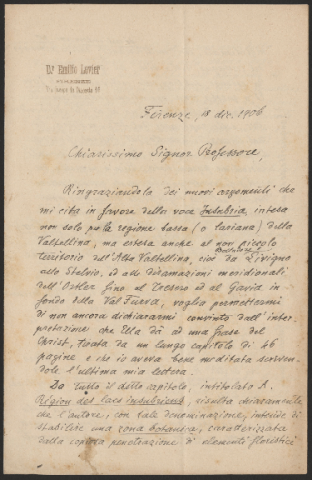 Dr Emilio Levier
Firenze, 18 dic. 1906
Chiarissimo Signor Professore,
Ringraziandola dei nuovi argomenti che
mi cita in favore della voce Insubria, intesa
non solo per la regione bassa (o lariana) della
Valtellina, ma estesa anche al non piccolo
territorio dell'Alta Valtellina, cioè da Livigno
allo Stelvio, ed alle diramazioni meridionali
dell'Ortler fino al Cevedale ed al Gavia in
fondo della Val Furva, voglia permettermi
di non ancora dichiararmi convinto dall'inter-
pretazione che Ella dà ad una frase del
Christ, tratta da un lungo capitolo di 46
pagine e che io aveva bene meditata scriven-
dole l'ultima mia lettera.
Da tutto il detto capitolo, intitolato A.
Région des lacs insubriens, risulta chiaramente
che l'autore, con tale denominazione, intende di
stabilire una zona botanica, caratterizzata
dalla copiosa penetrazione di elementi floristici